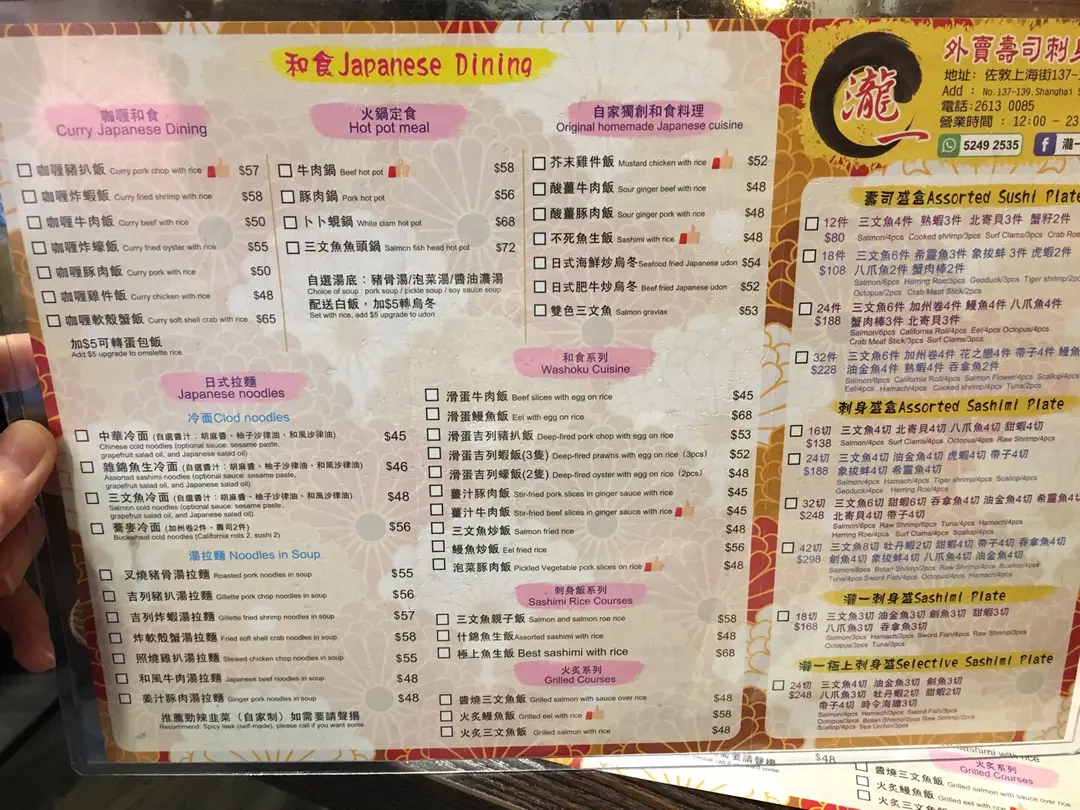 和食Japanese Dining
咖喱和食
Curry Japanese Dining
咖喱豬扒飯 Curry pork chop with rice $57
咖喱炸蝦飯 Curry fried shrimp with rice $58
咖喱牛肉飯 Curry beef with rice $50
咖喱炸蠔飯 Curry fried oyster with rice $55
咖喱豚肉飯 Curry pork with rice $50
咖喱雞件飯 Curry chicken with rice $48
咖喱軟殼蟹飯 Curry soft shell crab with rice $65
加$5可轉蛋包飯
Add $5 upgrade to omelette rice
火鍋定食
Hot pot meal
牛肉鍋 Beef hot pot $58
豚肉鍋 Pork hot pot $56
卜卜蜆鍋 White clam hot pot $68
三文魚魚頭鍋 Salmon fish head hot pot $72
自選湯底：豬骨湯/泡菜湯/醬油濃湯
Choice of soup : pork soup / pickle soup / soy sauce soup
配送白飯，加$5轉烏冬
Set with rice, add $5 upgrade to udon
自家獨創和食料理
Original homemade Japanese cuisine
芥末雞件飯 Mustard chicken with rice $52
酸薑牛肉飯 Sour ginger beef with rice $48
酸薑豚肉飯 Sour ginger pork with rice $48
不死魚生飯 Sashimi with rice $48
日式海鮮炒烏冬 Seafood fried Japanese udon $54
日式肥牛炒烏冬 Beef fried Japanese udon $52
雙色三文魚 Salmon gravlax $53
日式拉麵
Japanese noodles
冷面Clod noodles
中華冷面 (自選醬汁：胡麻醬、柚子沙律油、和風沙律油) $45
Chinese cold noodles (optional sauce: sesame paste,
grapefruit salad oil, and Japanese salad oil)
雜錦魚生冷面 (自選醬汁：胡麻醬、柚子沙律油、和風沙律油) $46
Assorted sashimi noodles (optional sauce: sesame paste,
grapefruit salad oil, and Japanese salad oil)
三文魚冷面 (自選醬汁：胡麻醬、柚子沙律油、和風沙律油) $48
Salmon cold noodles (optional sauce: sesame paste,
grapefruit salad oil, and Japanese salad oil)
蕎麥冷面 (加州卷2件，壽司2件) $56
Buckwheat cold noodles (California rolls 2, sushi 2)
湯拉麵 Noodles in Soup
叉燒豬骨湯拉麵 Roasted pork noodles in soup $55
吉列豬扒湯拉麵 Gillette pork chop noodles in soup $56
吉列炸蝦湯拉麵 Gillette fried shrimp noodles in soup $57
炸軟殼蟹湯拉麵 Fried soft shell crab noodles in soup $58
照燒雞扒湯拉麵 Stewed chicken chop noodles in soup $55
和風牛肉湯拉麵 Japanese beef noodles in soup $48
姜汁豚肉湯拉麵 Ginger pork noodles in soup $48
推薦勁辣韭菜（自家制）如需要請聲揚
Recommend: Spicy leek (self-made), please call if you want some.
和食系列
Washoku Cuisine
滑蛋牛肉飯 Beef slices with egg on rice $45
滑蛋鰻魚飯 Eel with egg on rice $68
滑蛋吉列豬扒飯 Deep-fired pork chop with egg on rice $53
滑蛋吉列蝦飯(3隻) Deep-fired prawns with egg on rice (3pcs) $52
滑蛋吉列蠔飯(2隻) Deep-fired oyster with egg on rice (2pcs) $48
薑汁豚肉飯 Stir-fried pork slices in ginger sauce with rice $45
薑汁牛肉飯 Stir-fried beef slices in ginger sauce with rice $45
三文魚炒飯 Salmon fried rice $48
鰻魚炒飯 Eel fried rice $56
泡菜豚肉飯 Pickled Vegetable pork slices on rice $48
刺身飯系列
Sashimi Rice Courses
三文魚親子飯 Salmon and salmon roe rice $58
什錦魚生飯 Assorted sashimi with rice $48
極上魚生飯 Best sashimi with rice $68
火炙系列
Grilled Courses
醬燒三文魚飯 Grilled salmon with sauce over rice $48
火炙鰻魚飯 Grilled eel with rice $58
火炙三文魚飯 Grilled salmon with rice $48
瀧一
外賣壽司刺身
地址：佐敦上海街137-
Add : No.137-139.Shanghai S
電話:2613 0085
營業時間：12:00 – 23
5249 2535
瀧一
壽司盛盒Assorted Sushi Plate
12件 三文魚4件 熟蝦3件 北寄貝3件 蟹籽2件
$80 Salmon/4pcs Cooked shrimp/3pcs Surf Clams/3pcs Crab Roe
18件 三文魚6件 希靈魚3件 象拔蚌 3件 虎蝦2件
$108 八爪魚2件 蟹肉棒2件
Salmon/6pcs Herring Roe/3pcs Geoduck/3pcs Tiger shrimp/2pc
Octopus/2pcs Crab Meat Stick/2pcs
24件 三文魚6件 加州卷4件 鰻魚4件 八爪魚4件
$188 蟹肉棒3件 北寄貝3件
Salmon/6pcs California Roll/4pcs Eel/4pcs Octopus/4pcs
Crab Meat Stick/3pcs Surf Clams/3pcs
32件 三文魚6件 加州卷4件 花之戀4件 帶子4件 鰻魚
$228 油金魚4件 熟蝦4件 吞拿魚2件
Salmon/6pcs California Roll/4pcs Salmon Flower/4pcs Scallop/4pcs
Eel/4pcs Hamachi/4pcs Cooked shrimp/4pcs Tuna/2pcs
刺身盛盒Assorted Sashimi Plate
16切 三文魚4切 北寄貝4切 八爪魚4切 甜蝦4切
$138 Salmon/4pcs Surf Clams/4pcs Octopus/4pcs Raw Shrimp/4pcs
24切 三文魚4切 油金魚4切 虎蝦4切 帶子4切
$188 象拔蚌4切 希靈魚4切
Salmon/4pcs Hamachi/4pcs Tiger shrimp/4pcs Scallop/4pcs
Geoduck/4pcs Herring Roe/4pcs
32切 三文魚6切 甜蝦6切 吞拿魚4切 油金魚4切 希靈魚4
$248 北寄貝4切 帶子4切
Salmon/6pcs Raw Shrimp/6pcs Tuna/4pcs Hamachi/4pcs
Herring Roe/4pcs Surf Clams/4pcs Scallop/4pcs
42切 三文魚8切 牡丹蝦2切 甜蝦4切 帶子4切 吞拿魚4切
$298 劍魚4切 象拔蚌4切 八爪魚4切 油金魚4切
Salmon/8pcs Botan Shrimp/2pcs Raw Shrimp/4pcs Scallop/4pcs
Tuna/4pcs Sword Fish/4pcs Octopus/4pcs Hamachi/4pcs
瀧一刺身盛Sashimi Plate
18切 三文魚3切 油金魚3切 劍魚3切 甜蝦3切
$168 八爪魚3切 吞拿魚3切
Salmon/3pcs Hamachi/3pcs Sword Fish/3pcs Raw Shrimp/3pcs
Octopus/3pcs Tuna/3pcs
瀧一極上刺身盛Selective Sashimi Plate
24切 三文魚4切 油金魚3切 劍魚3切
$248 八爪魚3切 牡丹蝦2切 甜蝦2切
帶子4切 時令海膽3切
Salmon/4pcs Hamachi/3pcs Sword Fish/3pcs
Octopus/3pcs Botan Shrimp/2pcs Raw Shrimp/2pcs
Scallop/4pcs Sea Urchin/3pcs
需要請聲揚
$48
sashimi with rice
火炙系列
Grilled Courses
醬燒三文魚飯 Grilled salmon with sauce over rice
火炙鰻魚飯 Grilled eel with rice
火炙三文魚飯